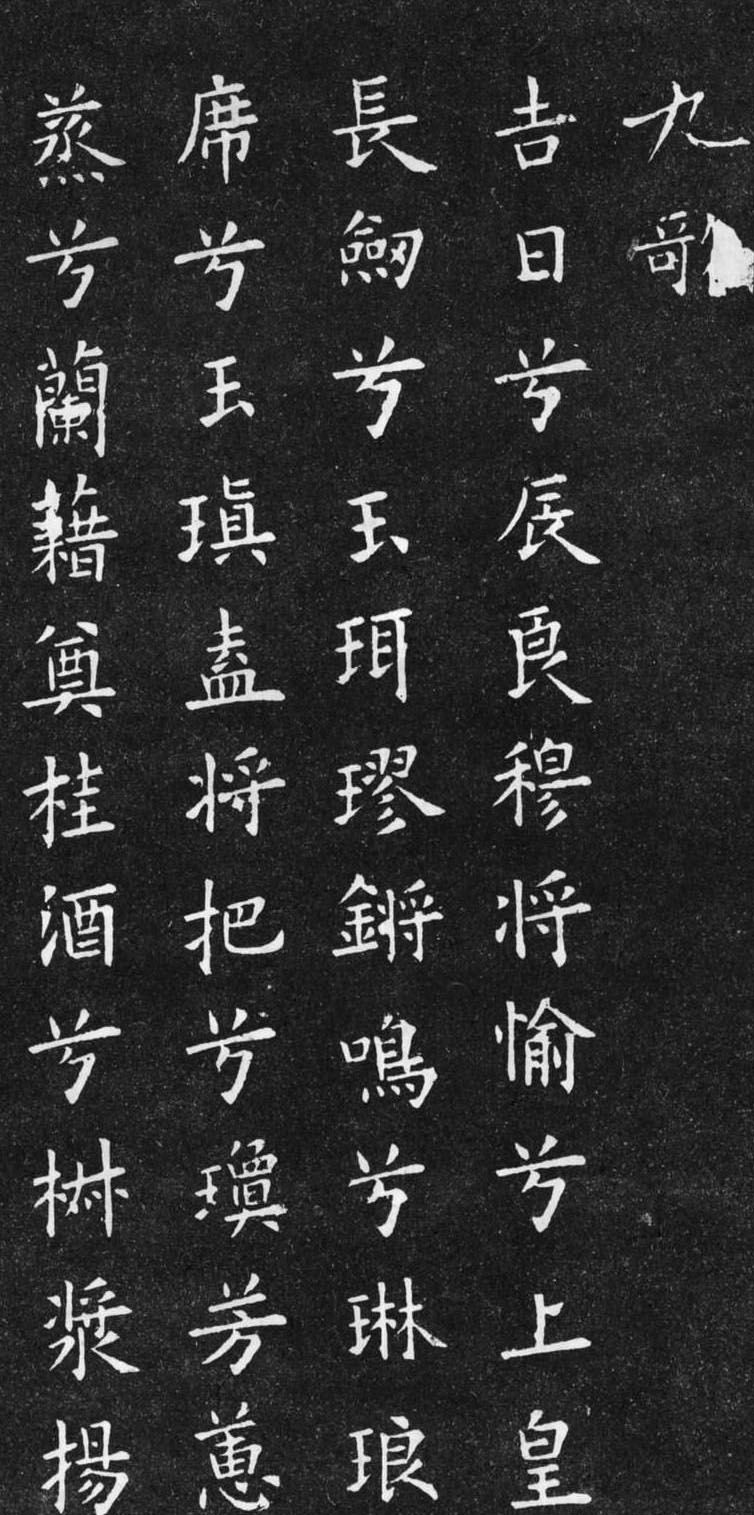 九歌
吉日兮辰良穆将愉兮上皇
長劒兮玉珥璆鏘鳴兮琳琅
席兮玉瑱盍将把兮瓊芳蕙
蒸兮蘭藉奠桂酒兮椒漿揚